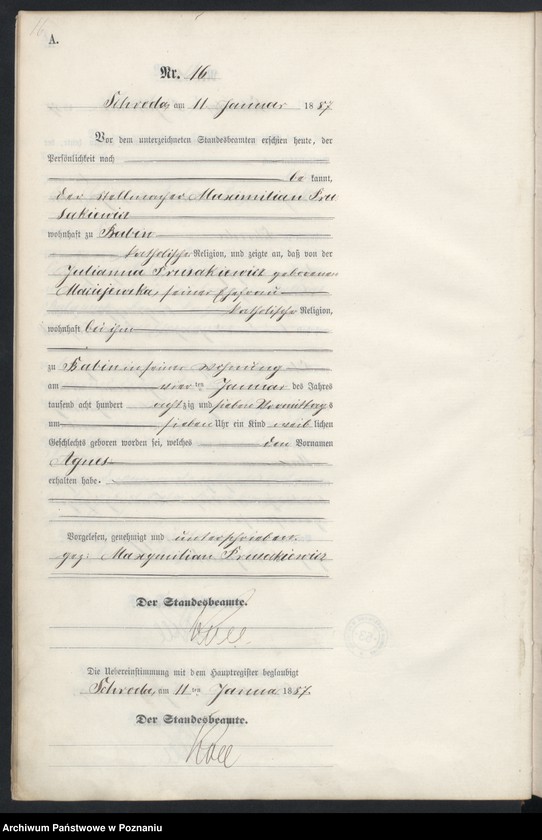 16
A.
Nr. 16
Schroda, am 11 Januar 1887
Vor dem unterzeichneten Standesbeamten erschien heute, der
Persönlichkeit nach
be kannt,
der Stellmacher Maximilian Pru
sakiewicz
wohnhaft zu Babin
katholischer Religion, und zeigte an, daß von der
Julianna Prusakiewicz geborenen
Maciejewska, seiner Ehefrau
katholischer Religion,
wohnhaft bei ihm
zu Babin in seiner Wohnung
am vier ten Januar des Jahres
tausend acht hundert acht zig und sieben Vormittags
um sieben Uhr ein Kind weib lichen
Geschlechts geboren worden sei, welches den Vornamen
Agnes
erhalten habe.
Vorgelesen, genehmigt und unterschrieben.
gez: Maxymilian Prusakiewicz
Der Standesbeamte.
Die Uebereinstimmung mit dem Hauptregister beglaubigt
Schroda, am 11 ten Januar 1887.
Der Standesbeamte.
Archiwum Państwowe w Poznaniu